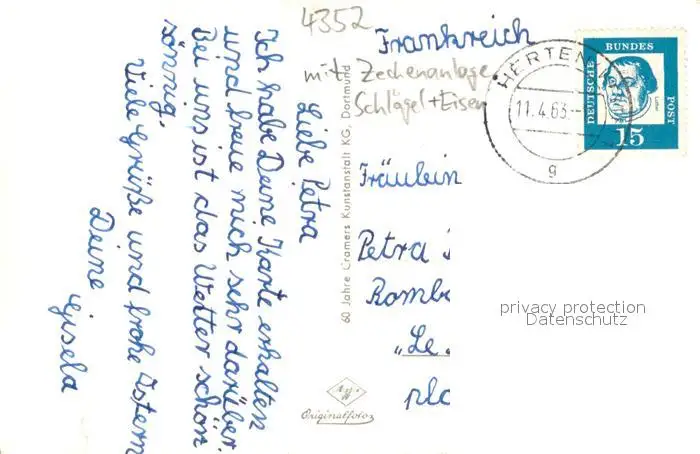 4352
Frankreich
mit Zechenanlage
Schlägel + Eisen
Liebe Petra
Ich habe Deine Karte erhalten
und freue mich sehr darüber.
Bei uns ist das Wetter schön
sonnig.
Viele Grüße und frohe Ostern
Deine
Gisela
60 Jahre Cramers Kunstanstalt KG, Dortmund
Originalfoto
Fräulein
Petra
Rombe
"Le
pla
HERTEN
11.4.63
g
DEUTSCHE
BUNDES
POST
15
privacy protection
Datenschutz